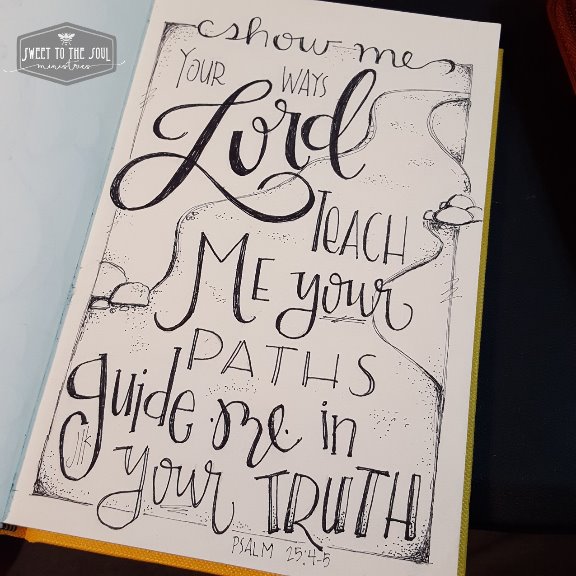 SWEET TO THE SOUL
ministries
show me
YOUR WAYS
Lord
TEACH
ME your
PATHS
guide me in
your TRUTH
JK
PSALM 25:4-5